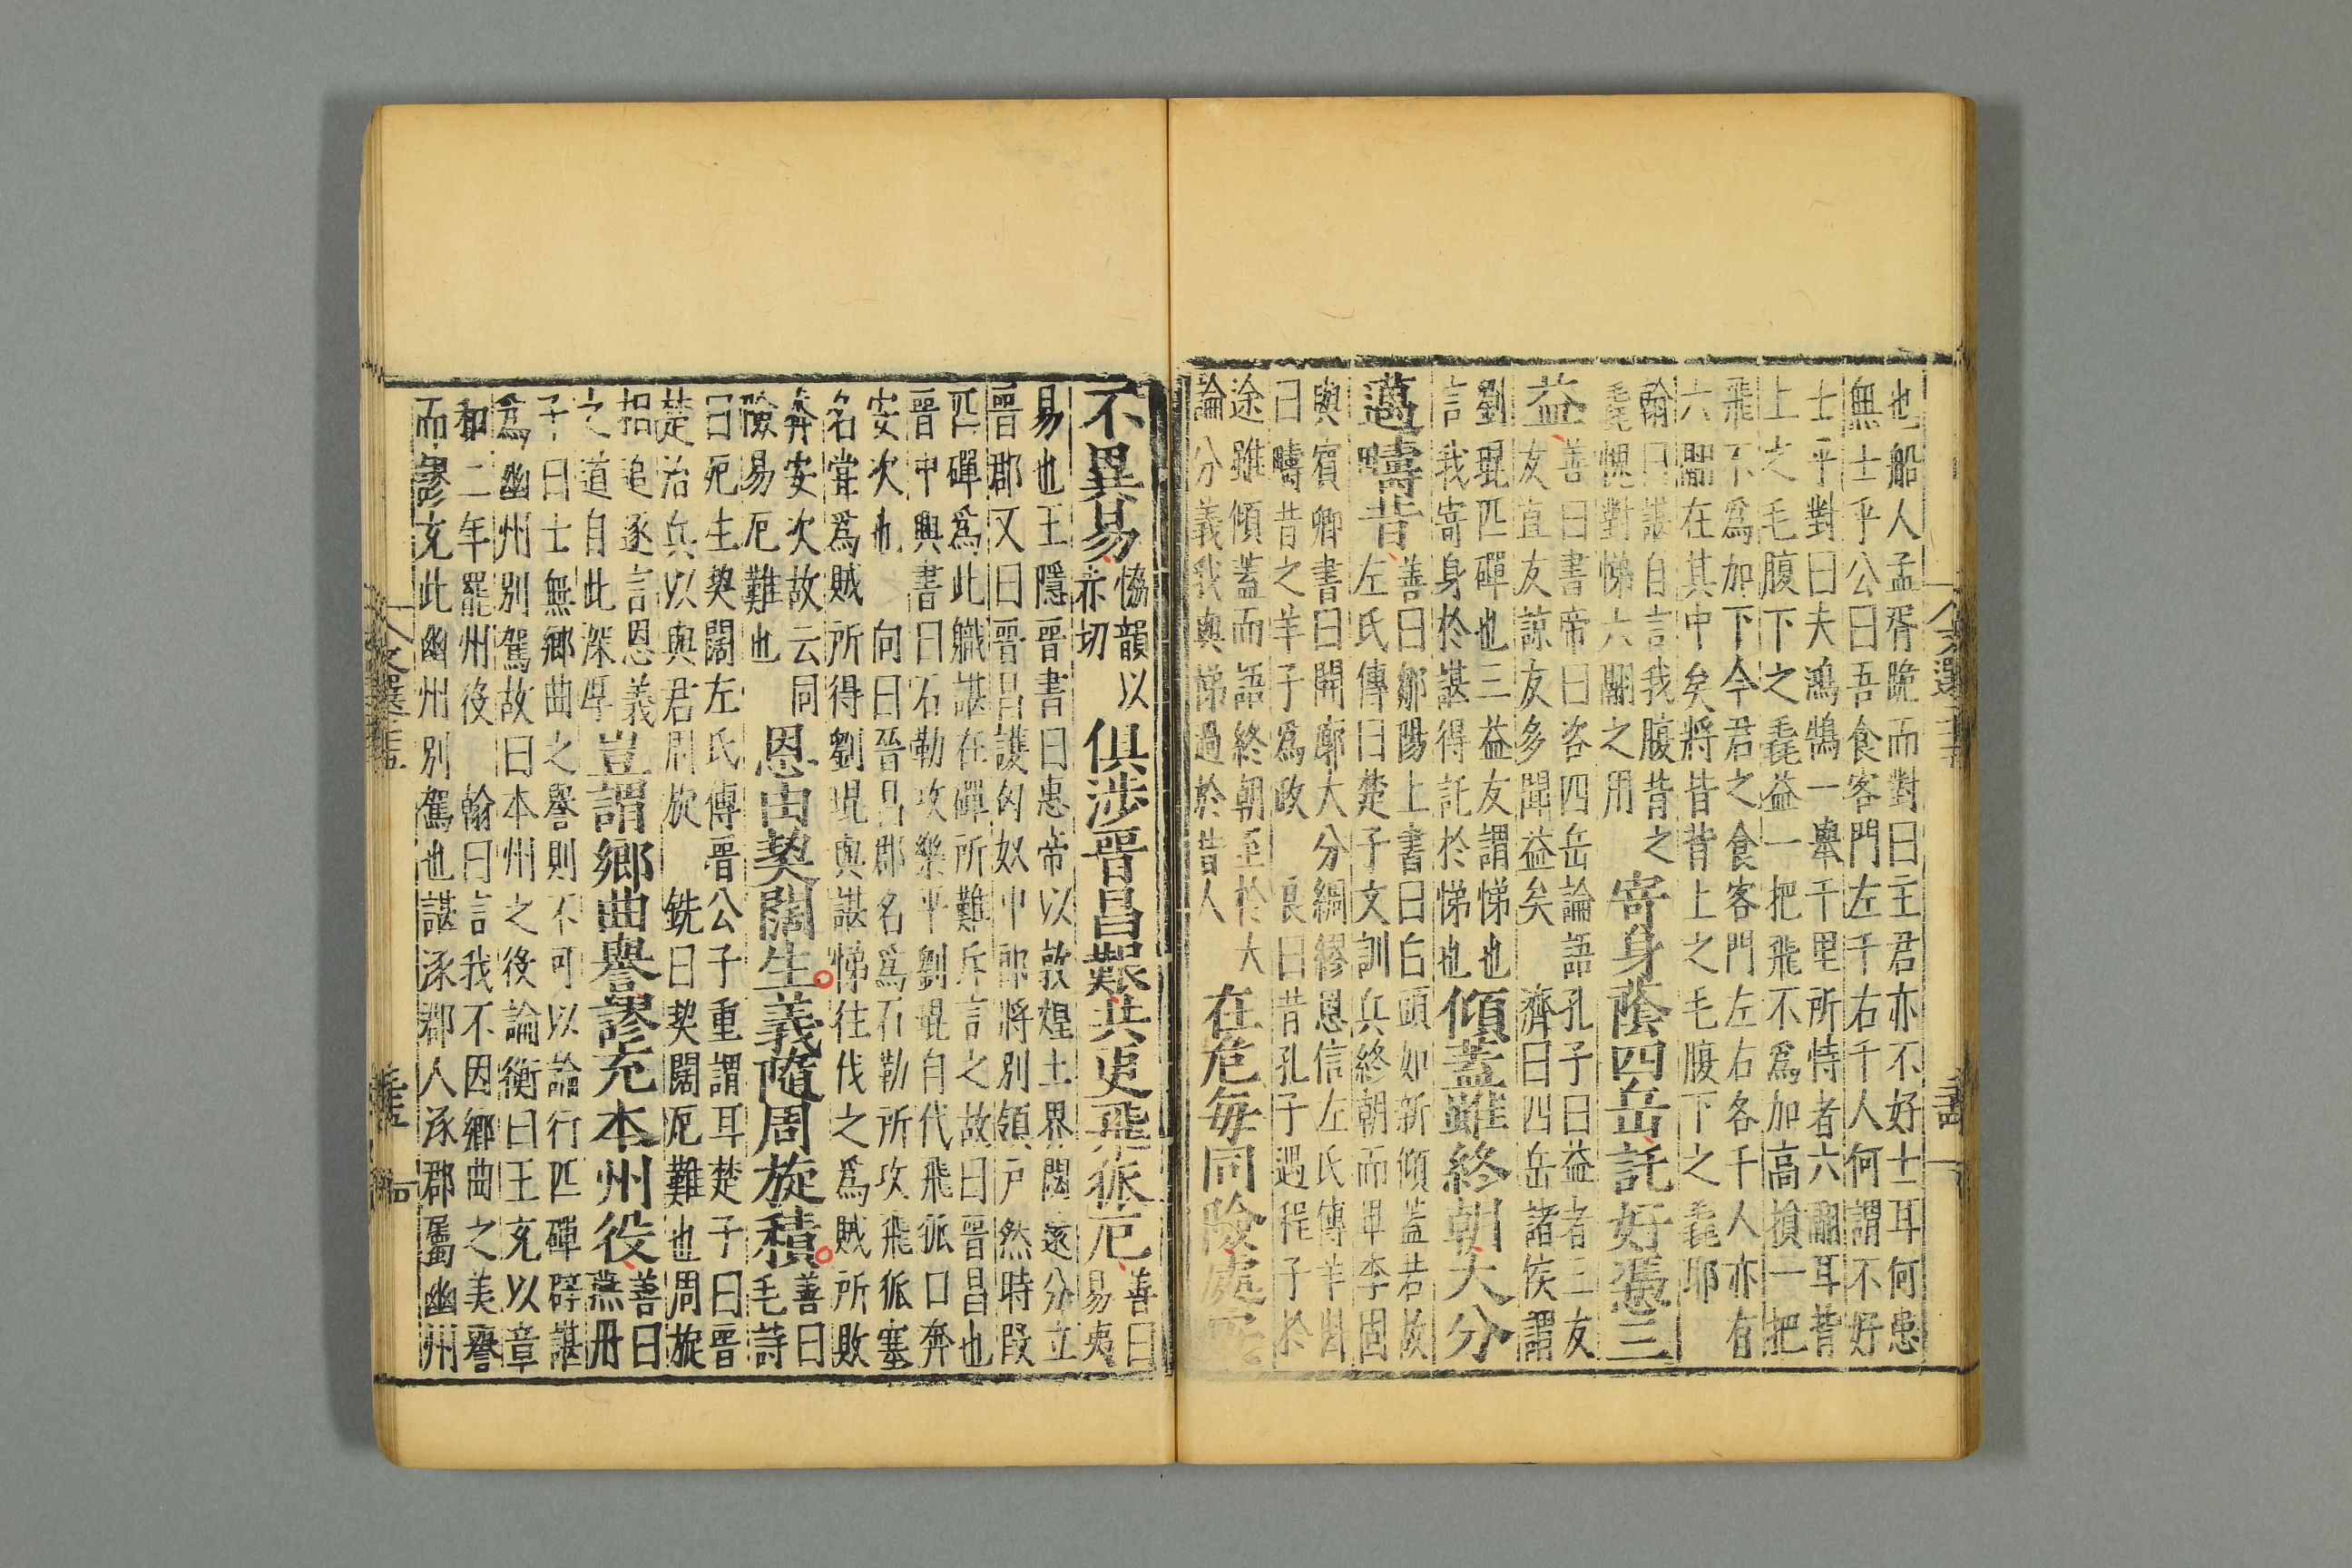 也船人孟胥跪而對曰主君亦不好士耳何患
無士乎公曰吾食客門左千右千人何謂不好
士乎對曰夫鴻鵠一舉千里所恃者六翮耳背
上之毛腹下之毳益一把飛不爲加高損一把
飛不爲加下今君之食客門左右各千人亦有
六翮在其中矣將皆背上之毛腹下之毳耶
翰曰諶自言我腹背之
毳愧對悌六翮之用
寄身蔭四岳託好憑三
益
善曰書帝曰咨四岳論語孔子曰益者三友
友直友諒友多聞益矣 濟曰四岳諸侯謂
劉琨匹磾也三益友謂悌也
言我寄身於諶得託於悌也
傾蓋雖終朝大分
邁疇昔
善曰鄒陽上書曰白頭如新傾蓋若故
左氏傳曰楚子文訓兵終朝而畢李固
與賓卿書曰開廓大分綢繆恩信左氏傳羊斟
曰疇昔之羊子爲政 良曰昔孔子遇程子於
途雖傾蓋而語終朝至於大
論分義我與悌過於昔人
在危每同險處安
不異易
恊韻以
赤切
俱涉晉昌艱共更飛狐厄
善曰
易夷
易也王隱晉書曰惠帝以敦煌土界闊遠分立
晉郡又曰晉昌護匈奴中郎將別領戶然時段
匹磾爲此職諶在磾所難斥言之故曰晉昌也
晉中興書曰石勒攻樂平劉琨自代飛狐口奔
安次也 向曰晉昌郡名爲石勒所攻飛狐塞
名甞爲賊所得劉琨與諶悌往伐之爲賊所敗
奔安次故云同
險易厄難也
恩由契闊生義隨周旋積
善曰
毛詩
曰死生契闊左氏傳晉公子重謂耳楚子曰晉
楚治兵以與君周旋 銑曰契闊厄難也周旋
相追逐言恩義
之道自此深厚
豈謂鄉曲譽謬充本州役
善曰
燕丹
子曰士無鄉曲之譽則不可以論行匹磾辟諶
爲幽州別駕故曰本州之役論衡曰王充以章
和二年罷州役 翰曰言我不因鄉曲之美譽
而謬充此幽州別駕也諶涿郡人涿郡屬幽州